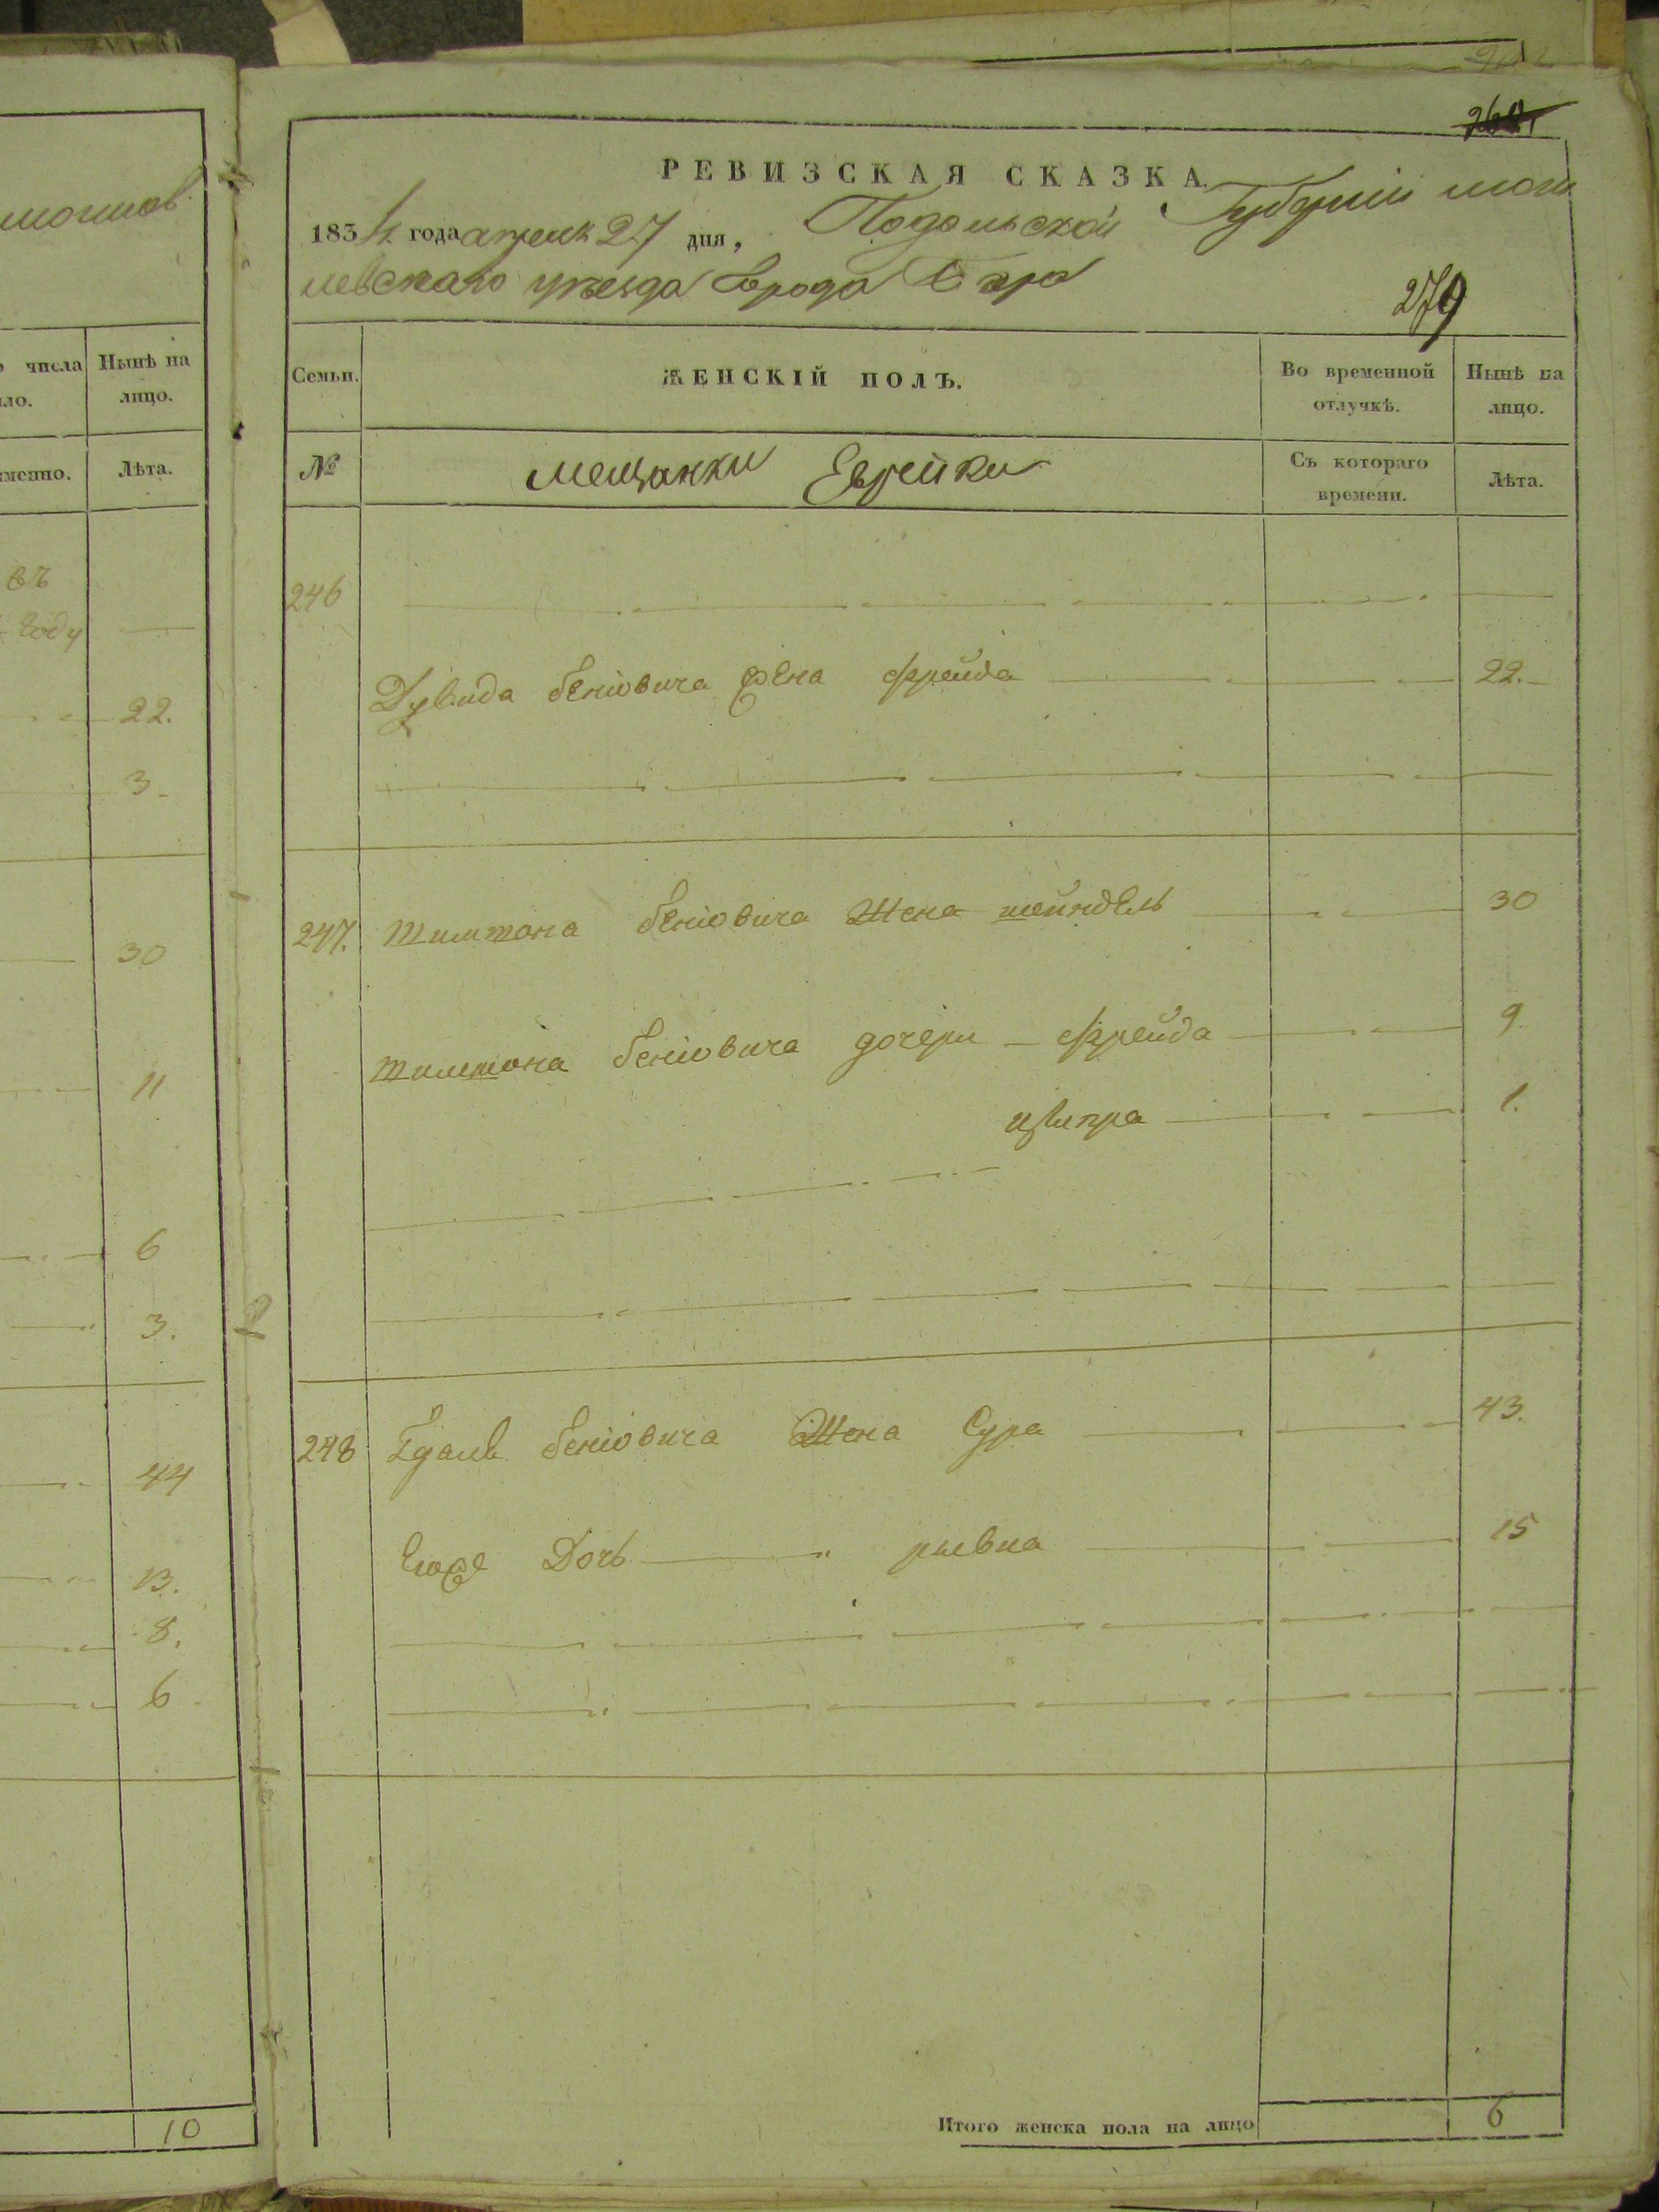 могилев
о числа
Нынѣ на
ыло.
лицо.
именно.
Лѣта.
въ
году
22.
3
30
11
6
3.
44
13.
8.
6
10
РЕВИЗСКАЯ СКАЗКА.
1834 года апреля 27 дня, Подольской Губернии моги
левскаго уѣзда города Бара
279
Семьи.
ЖЕНСКІЙ ПОЛЪ.
Во временной отлучкѣ.
Нынѣ на лицо.
№
мещанки Еврейки
Съ котораго времени.
Лѣта.
246
Дувида беніовича жена фрейда 22.
247. Шимшона беніовича Жена шейндель 30
Шимшона беніовича дочери фрейда 9
ципра 1.
248 Гдаля беніовича Жена Сура 43.
Егоже Дочь ривка 15
Итого женска пола на лицо 6